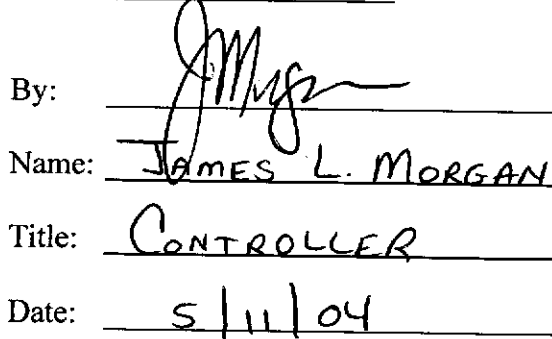 By: J Morgan
Name: JAMES L. MORGAN
Title: CONTROLLER
Date: 5/11/04